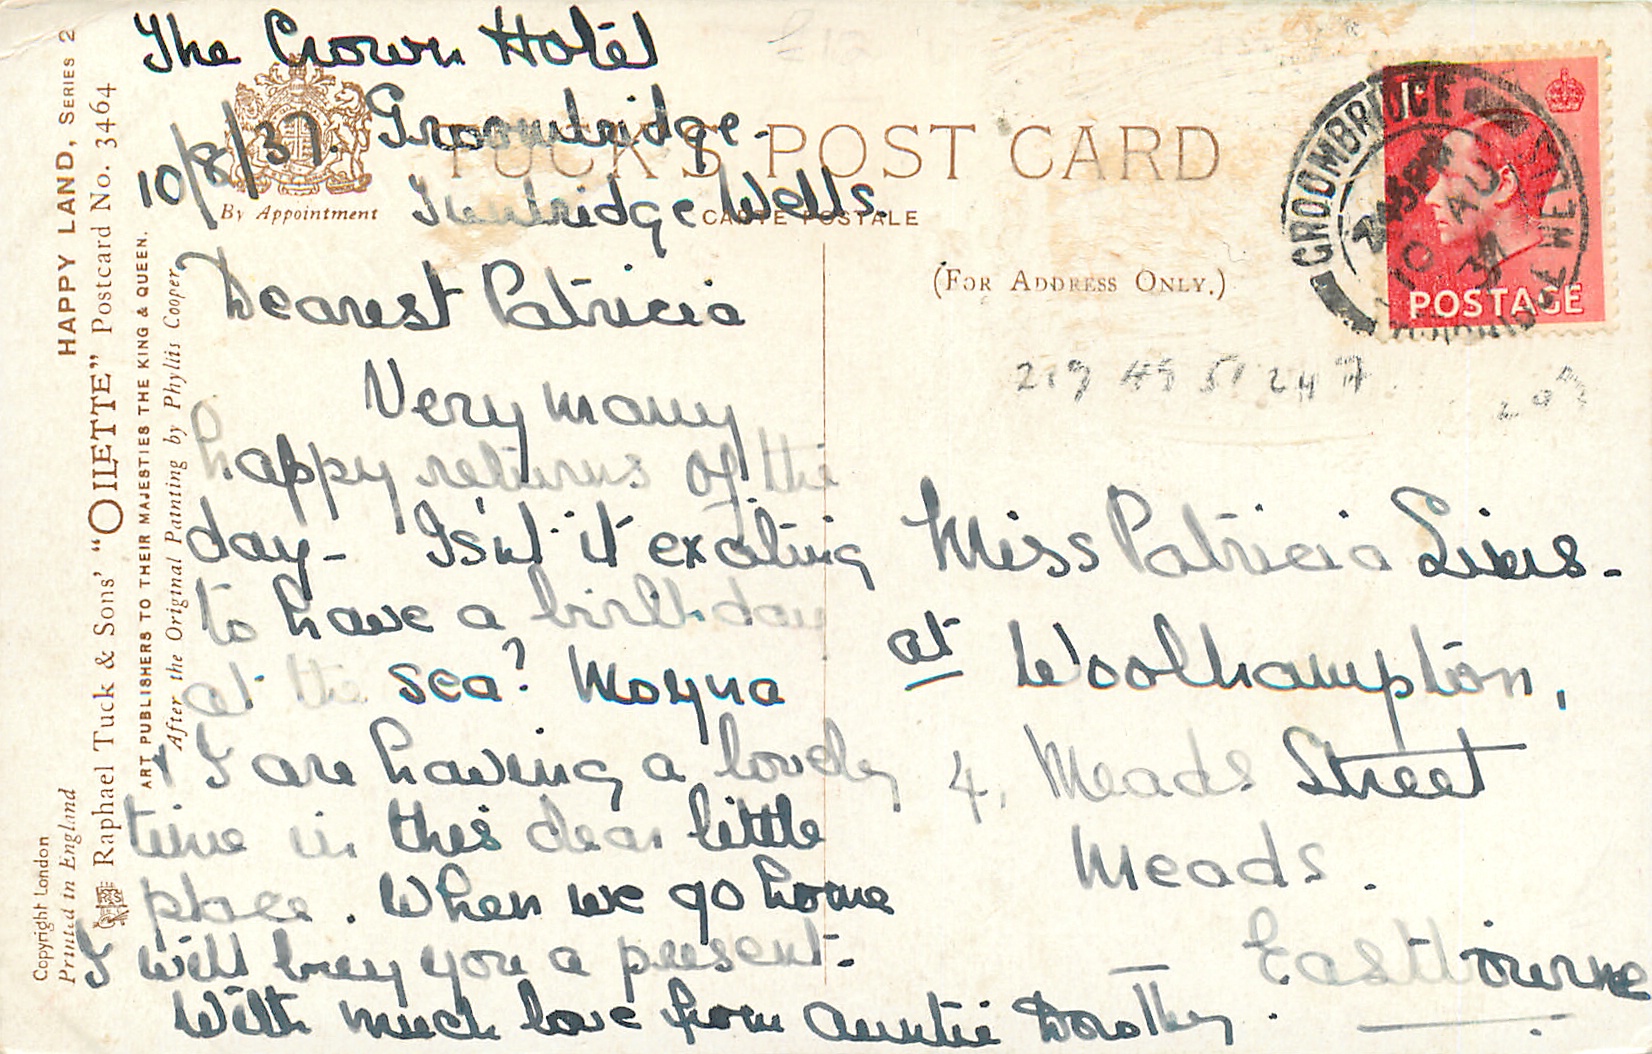 The Crown Hotel
Groombridge.
10/8/37.
Tunbridge Wells.
Dearest Patricia
Very many
happy returns of the
day - Isn't it exciting
to have a birthday
at the sea? Moyna
+ I are having a lovely
time in this dear little
place. When we go home
I will buy you a present.
With much love from Auntie Dorothy.
TUCK'S POST CARD
CARTE POSTALE
By Appointment
(FOR ADDRESS ONLY.)
GROOMBRIDGE
TUNBRIDGE WELLS
10 AU
37
1D
POSTAGE
219 49 51 247
209
Miss Patricia
at Woolhampton,
4, Meads Street
Meads.
Eastbourne
HAPPY LAND, SERIES 2
Raphael Tuck & Sons' "OILETTE" Postcard No. 3464
ART PUBLISHERS TO THEIR MAJESTIES THE KING & QUEEN.
After the Original Painting by Phyllis Cooper
Copyright London
Printed in England